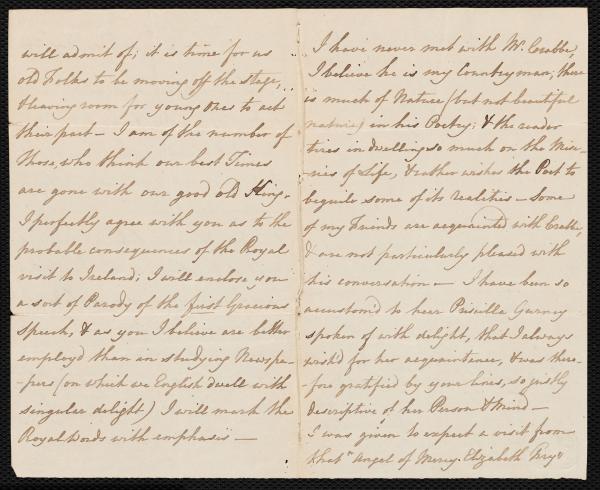 will admit of; it is time for us
old Folks to be moving off the stage,
& leaving room for young Ones to act
their part — I am of the number of
those, who think our best Times
are gone with our good old King.
I perfectly agree with you as to the
probable consequences of the Royal
visit to Ireland; I will enclose you
a sort of Parody of the first Gracious
speech, & as you I believe are better
employd than in studying Newspa-
-pers (on which we English dwell with
singular delight) I will mark the
Royal words with emphasis —
I have never met with Mr. Crabbe,
I believe he is my Countryman; there
is much of Nature (but not beautiful
nature) in his Poetry; & the reader
tires in dwelling so much on the Mise-
-ries of Life, & rather wishes the Poet to
beguile some of its realities — Some
of my Friends are acquainted with Crabbe,
& are not particularly pleased with
his conversation — I have been so
accustom'd to hear Priscilla Gurney
spoken of with delight, that I always
wish'd for her acquaintance, & was there-
-fore gratified by your lines, so justly
descriptive of her Person & Mind —
I was given to expect a visit from
that Angel of Mercy. Elizabeth Fry